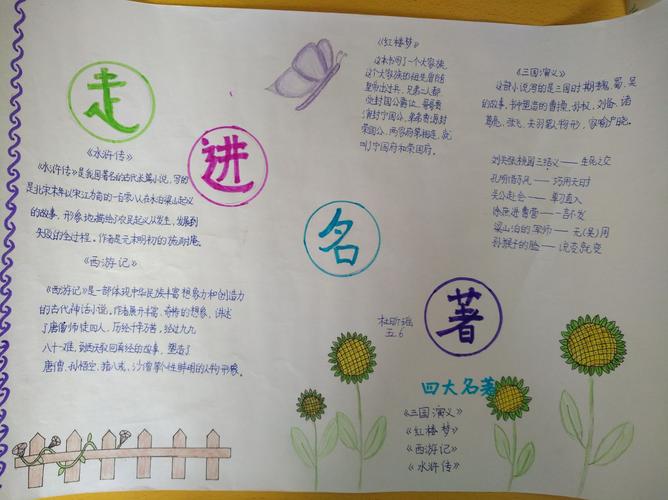 走
进
名
著
《水浒传》
《水浒传》是我国著名的古代长篇小说，写的
是北宋末年以宋江为首的一百零八人在水泊梁山起义
的故事，形象地描绘了农民起义从发生，发展到
失败的全过程。作者是元末明初的施耐庵。
《西游记》
《西游记》是一部体现中华民族丰富想象力和创造力
的古代神话小说。作者展开丰富、奇特的想象、讲述
了唐僧师徒四人，历经千辛万苦，经过九九
八十一难，到西天取回真经的故事，塑造了
唐僧、孙悟空、猪八戒、沙僧等个性鲜明的人物形象。
《红楼梦》
这本书写了一个大家族，
这个大家族的祖先曾随
皇帝出过兵，兄弟二人都
受封国公爵位，哥哥贾
演封宁国公，弟弟贾源封
荣国公，两家府第相连，就
叫宁国府和荣国府。
《三国演义》
这部小说写的是三国时期魏、蜀、吴
的故事，书中塑造的曹操、孙权、刘备、诸
葛亮、张飞、关羽等人物形，家喻户晓。
刘关张桃园三结义——生死之交
孔明借东风——巧用天时
关公赴会——单刀直入
徐庶进曹营——一言不发
梁山泊的军师——无(吴)用
孙猴子的脸——说变就变
五.6
四大名著
《三国演义》
《红楼梦》
《西游记》
《水浒传》